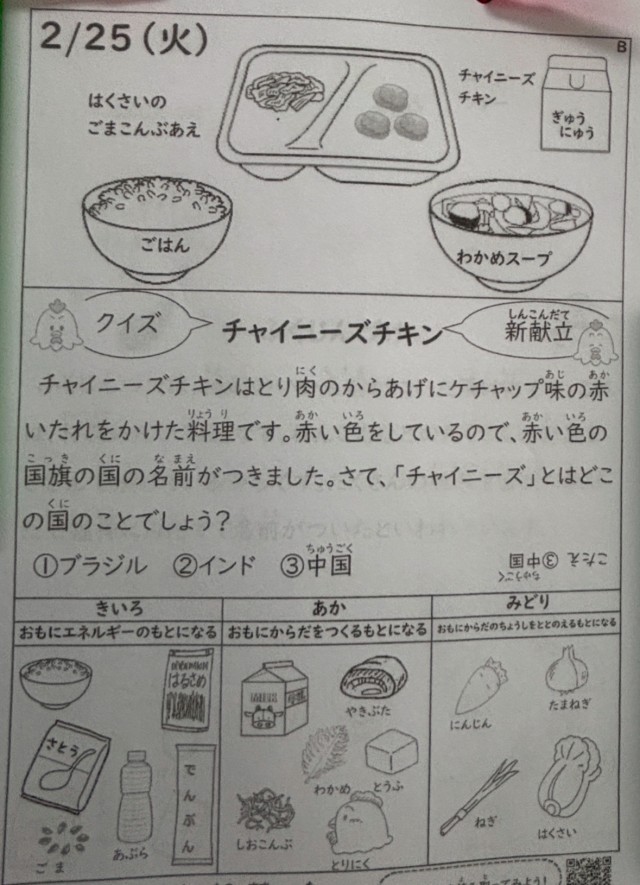 2/25（火）
B
はくさいの
ごまこんぶあえ
チャイニーズ
チキン
ぎゅう
にゅう
ごはん
わかめスープ
クイズ
チャイニーズチキン
しんこんだて
新献立
にく あじ あか
チャイニーズチキンはとり肉のからあげにケチャップ味の赤
りょうり あか いろ あか いろ
いたれをかけた料理です。赤い色をしているので、赤い色の
こっき くに なまえ
国旗の国の名前がつきました。さて、「チャイニーズ」とはどこ
くに
の国のことでしょう？
ちゅうごく
①ブラジル ②インド ③中国
こたえ ③中国
ちゅうごく
きいろ
おもにエネルギーのもとになる
はるさめ
さとう
でんぷん
ごま
あぶら
あか
おもにからだをつくるもとになる
MILK
やきぶた
わかめ
とうふ
しおこんぶ
とりにく
みどり
おもにからだのちょうしをととのえるもとになる
にんじん
たまねぎ
ねぎ
はくさい